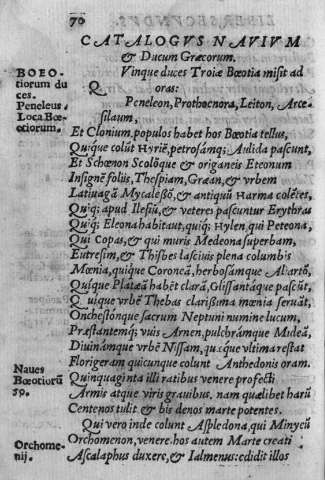 70
CATALOGVS NAVIVM
& Ducum Græcorum.
BOEO-
tiorum du
ces.
Peneleus
Loca Bœ-
otiorum.
QVinque duces Troiæ Bœotia misit ad
oras:
Peneleon, Prothoenora, Leiton, Arce-
silaum,
Et Clonium, populos habet hos Bœotia tellus,
Quíque colūt Hyriē, petrosámq; Aulida pascunt,
Et Schœnon Scolóque & origaneis Eteonum
Insignē foliis, Thespiam, Græan, & vrbem
Latiuagā Mycalessō, & antiquū Harma colētes,
Quíq; apud Ilesiū, & veteres pascuntur Erythras
Quíq; Eleona habitaut, quíq; Hylen, qui Peteona,
Qui Copas, & qui muris Medeona superbam,
Eutresim, & Thisbes lasciuis plena columbis
Mœnia, quíque Coroneā, herbosámque Aliartō,
Quíque Plateā habēt clarā, Glissantáque pascūt,
Quique vrbē Thebas clarissima mœnia seruāt,
Onchestónque sacrum Neptuni numine lucum,
Præstantemq; vuis Arnen, pulchrámque Mideā,
Diuinámque vrbē Nissam, quæque vltima restat
Florigeram quicunque colunt Anthedonis oram.
Naues
Bœotiorū
50.
Quinquaginta illi ratibus venere profecti
Armis atque viris grauibus, nam quælibet harū
Centenos tulit & bis denos marte potentes.
Qui vero inde colunt Aspledona, qui Minyeū
Orchome-
nij.
Orchomenon, venere, hos autem Marte creati
Ascalaphus duxere, & Ialmenus: edidit illos